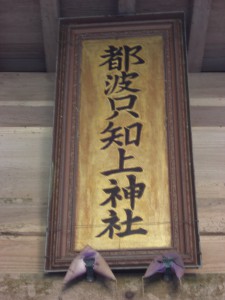 都波只知上神社